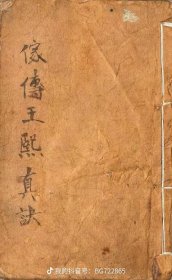 傢傳王熙真訣
我的抖音号：BG722865